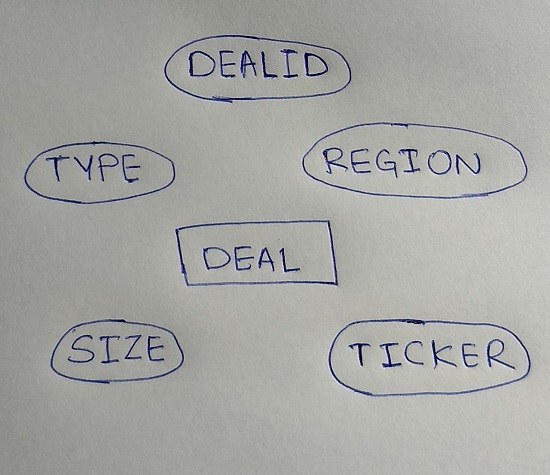 DEALID
TYPE
REGION
DEAL
SIZE
TICKER